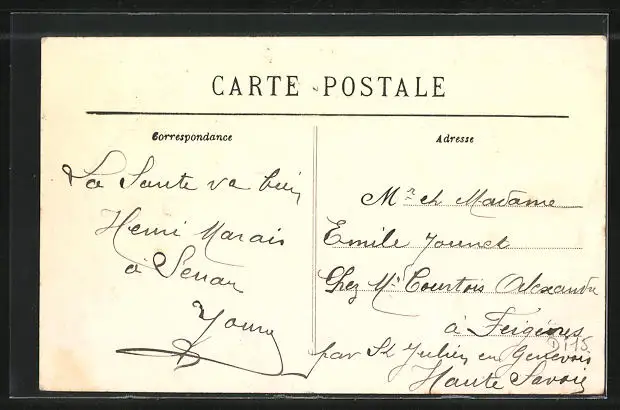 CARTE POSTALE
Correspondance
Adresse
La Sante va bien
Henri Marais
à Senan
Mr et Madame
Emile Jounet
Chez Mr Courtois Alexandre
à Feigères
par St Julien en Genevois
Haute Savoie